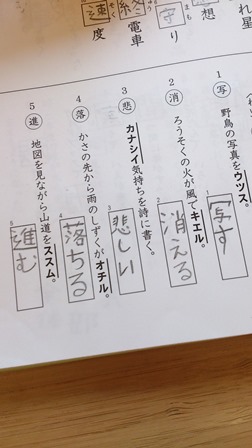 れ星
想
守り
経電車
速度
1 写 野鳥の写真をウツス。
写す
2 消 ろうそくの火が風でキエル。
消える
3 悲 カナシイ気持ちを詩に書く。
悲しい
4 落 かさの先から雨のしずくがオチル。
落ちる
5 進 地図を見ながら山道をススム。
進む